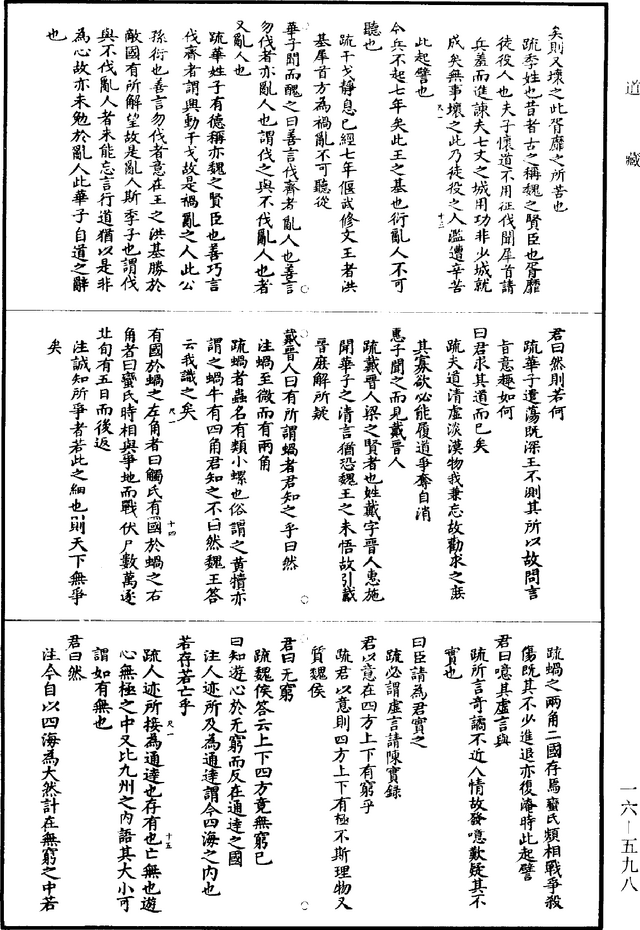 道藏
矣則又壞之此胥靡之所苦也
疏季姓也昔者古之稱魏之賢臣也胥靡
徒役人也夫子懷道不用征伐聞犀首請
兵羞而進諫夫七丈之城用功非少城就
成矣無事壞之此乃徒役之人濫遭辛苦
此起譬也
尺一
十三
今兵不起七年矣此王之基也衍亂人不可
聽也
疏干戈靜息已經七年偃武修文王者洪
基犀首方為禍亂不可聽從
華子聞而醜之曰善言伐齊者亂人也善言
勿伐者亦亂人也謂伐之與不伐亂人也者
又亂人也
疏華姓子有德稱亦魏之賢臣也善巧言
伐齊者謂興動干戈故是禍亂之人此公
孫衍也善言勿伐者意在王之洪基勝於
敵國有所解望故是亂人斯季子也謂伐
與不伐亂人者未能忘言行道猶以是非
為心故亦未勉於亂人此華子自道之辭
也
君曰然則若何
疏華子遣蕩既深王不測其所以故問言
旨意趣如何
曰君求其道而已矣
疏夫道清虛淡漠物我兼忘故勸求之庶
其寡欲必能履道爭奪自消
惠子聞之而見戴晉人
疏戴晉人梁之賢者也姓戴字晉人惠施
聞華子之清言猶恐魏王之未悟故引戴
晉庶解所疑
戴晉人曰有所謂蝸者君知之乎曰然
注蝸至微而有兩角
疏蝸者蟲名有類小螺也俗謂之黃犢亦
謂之蝸牛有四角君知之不曰然魏王答
云我識之矣
尺一
十四
有國於蝸之左角者曰觸氏有國於蝸之右
角者曰蠻氏時相與爭地而戰伏尸數萬逐
北旬有五日而後返
注誠知所爭者若此之細也則天下無爭
矣
疏蝸之兩角二國存焉蠻氏類相戰爭殺
傷既其不少進退亦復淹時此起譬
君曰噫其虛言與
疏所言奇譎不近人情故發噫歎疑其不
實也
曰臣請為君實之
疏必謂虛言請陳實錄
君以意在四方上下有窮乎
疏君以意則四方上下有極不斯理物又
質魏侯
君曰无窮
疏魏侯答云上下四方竟無窮已
曰知遊心於无窮而反在通達之國
注人迹所及為通達謂今四海之內也
若存若亡乎
疏人迹所接為通達也存有也亡無也遊
心無極之中又比九州之內語其大小可
謂如有無也
尺一
十五
君曰然
注今自以四海為大然計在無窮之中若
一六—五九八